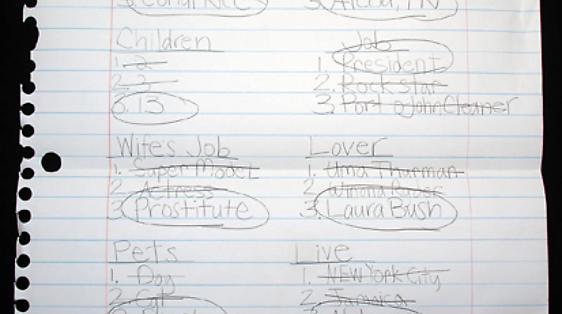 Children
1. 2
2. 3
3. 13
Job
1. President
2. Rockstar
3. Port o John Cleaner
Wifes Job
1. Super Model
2. Actress
3. Prostitute
Lover
1. Uma Thurman
2.
3. Laura Bush
Pets
1. Dog
2. Cat
Live
1. NEW York City
2. Jamaica